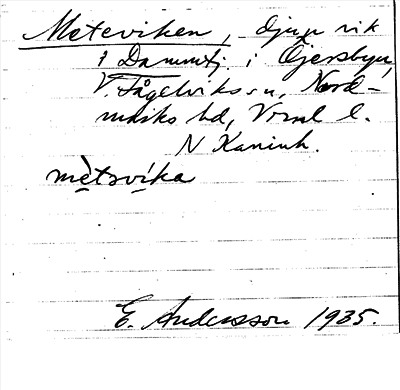 Meteviken, djup vik
i Dammtj. i Öjersbyn,
V. Fågelviks sn, Nord-
marks hd, Vrml l.
N Kaninh.
mètsvíka
E. Andersson 1935.